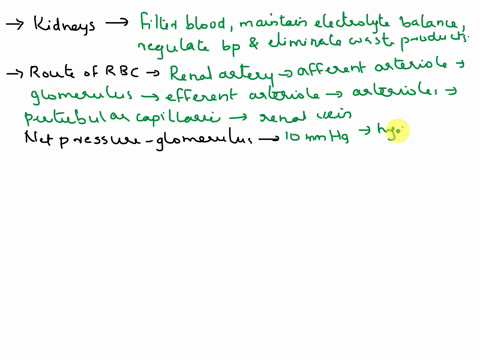 → Kidneys → filter blood, maintain electrolyte balance,
regulate bp & eliminate waste products.
→ Route of RBC → Renal artery → afferent arteriole →
glomerulus → efferent arteriole → arterioles →
pertubular capillaries → renal vein
Net pressure - glomerulus → 10 mmHg →